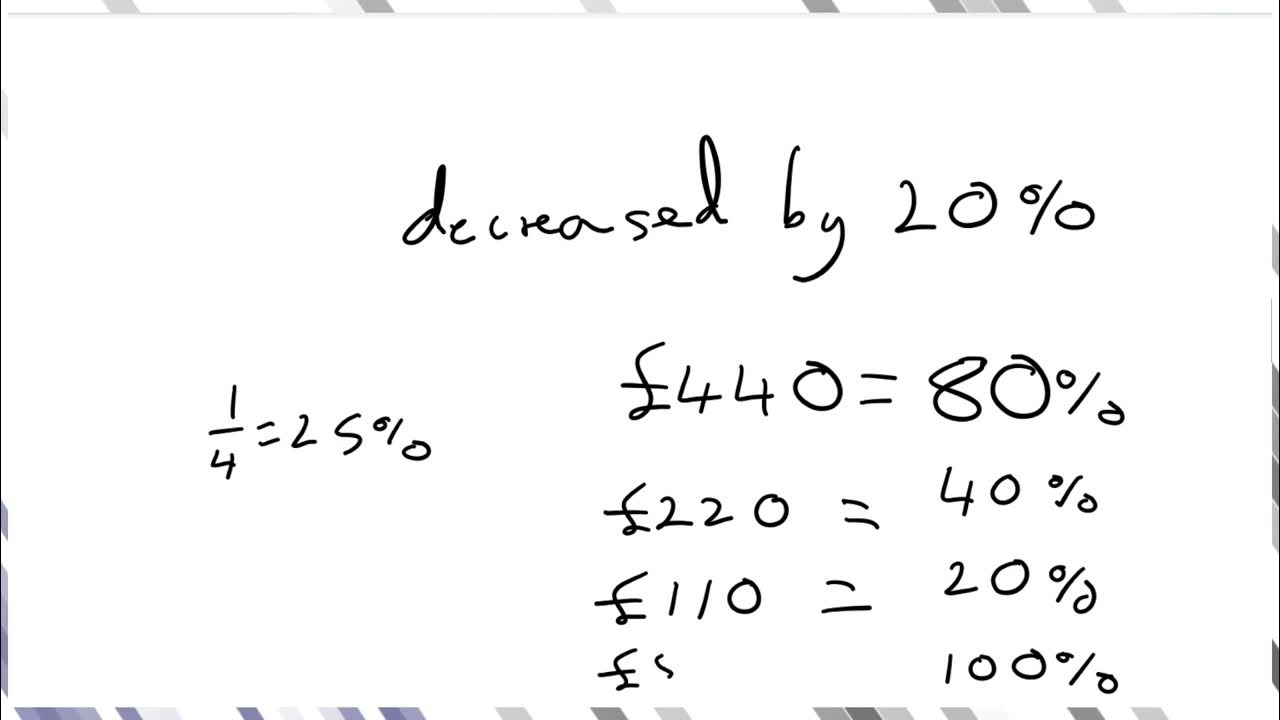 decreased by 20%
£440 = 80%
1/4 = 25%
£220 = 40%
£110 = 20%
£5 100%